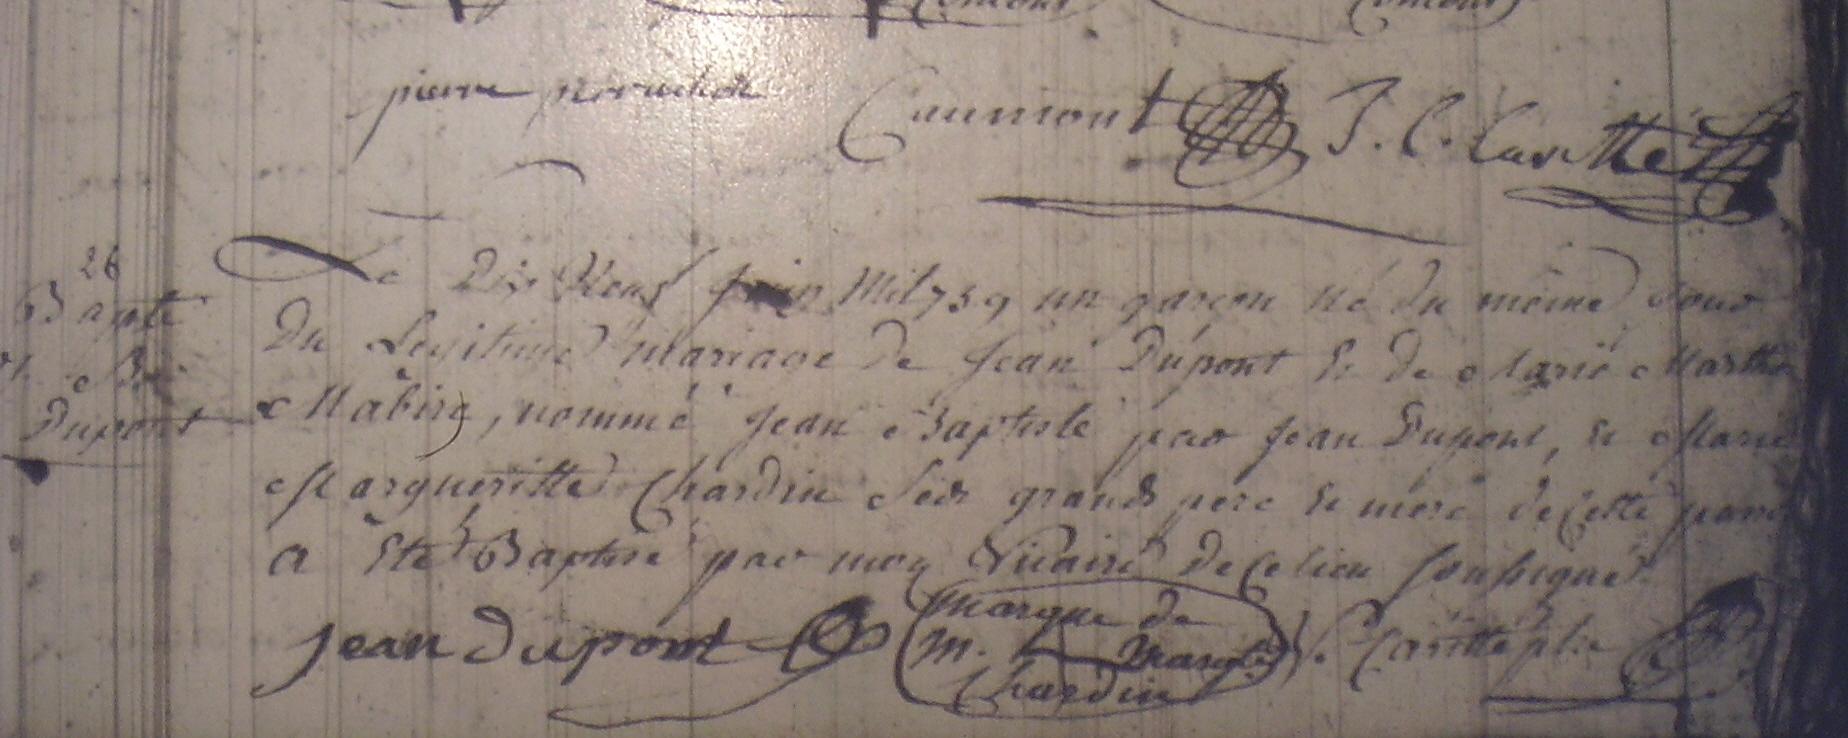 pierre
Caumont J. C. Caritté
26
Bapte
Dupont
Le Dix Neuf juin Mil 759 un garçon né du même jour
Du Legitime mariage de Jean Dupont Et de Marie Marthe
Mabire, nommé Jean Baptiste par Jean Dupont, Et Marie
Margueritte Chardin Ses grands pere Et mere de cette paroi
A Eté Baptisé par moy Vicaire de ce lieu soussigné
jean dupont
marque de
m. Margte
Chardin
Caritté ptre